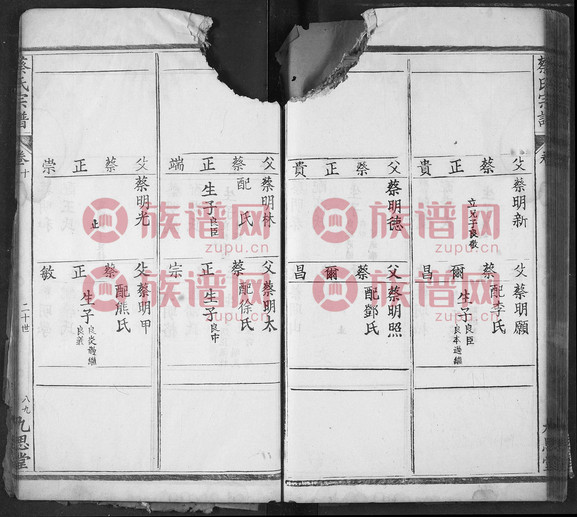 蔡氏宗譜
父蔡正貴
蔡明新
立兄子良敬
父蔡正貴
蔡明德
父蔡爾昌
蔡明願
配李氏
生子良臣
良本過繼
父蔡爾昌
蔡明照
配鄧氏
父蔡正端
蔡明林
配 氏
生子良臣
父蔡正崇
蔡明光
正
父蔡正宗
蔡明太
配徐氏
生子良中
父蔡正敏
蔡明甲
配熊氏
生子良炎過繼
良義
蔡氏宗譜
卷十
二十世
八九
九思堂
族谱网
zupu.cn
族谱网
zupu.cn
族谱网
zupu.cn
族谱网
zupu.cn